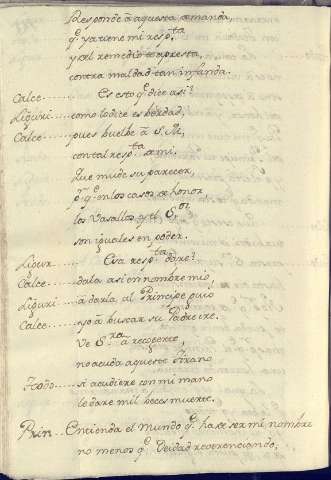 Responde â aquesta demanda,
q.e ya tiene mi resp.ta
y ael remedio se apresta,
contra maldad tan infanda.
Calce...... Es esto q.e dice asi?
Liguri.... como lo dice es berdad,
Calce...... pues buelbe â S. M,
con tal resp.ta de mi.
Que mude su parecer,
p.r q.e en los casos de honor
los Vasallos y el S.or
son iguales en poder.
Ligur...... Esa resp.ta dare?
Calce...... dala asi en nombre mio,
Liguri..... â darla, al Principe guio
Calce...... yo â buscar su Padre ire.
Ve S.ra â recojerte,
no acuda aqueste tirano
Teodo..... si acudiere con mi mano
le dare mil beces muerte.
Prin... Entienda el Mundo q.e ha de ser mi nombre
no menos q.e Deidad reverenciando,